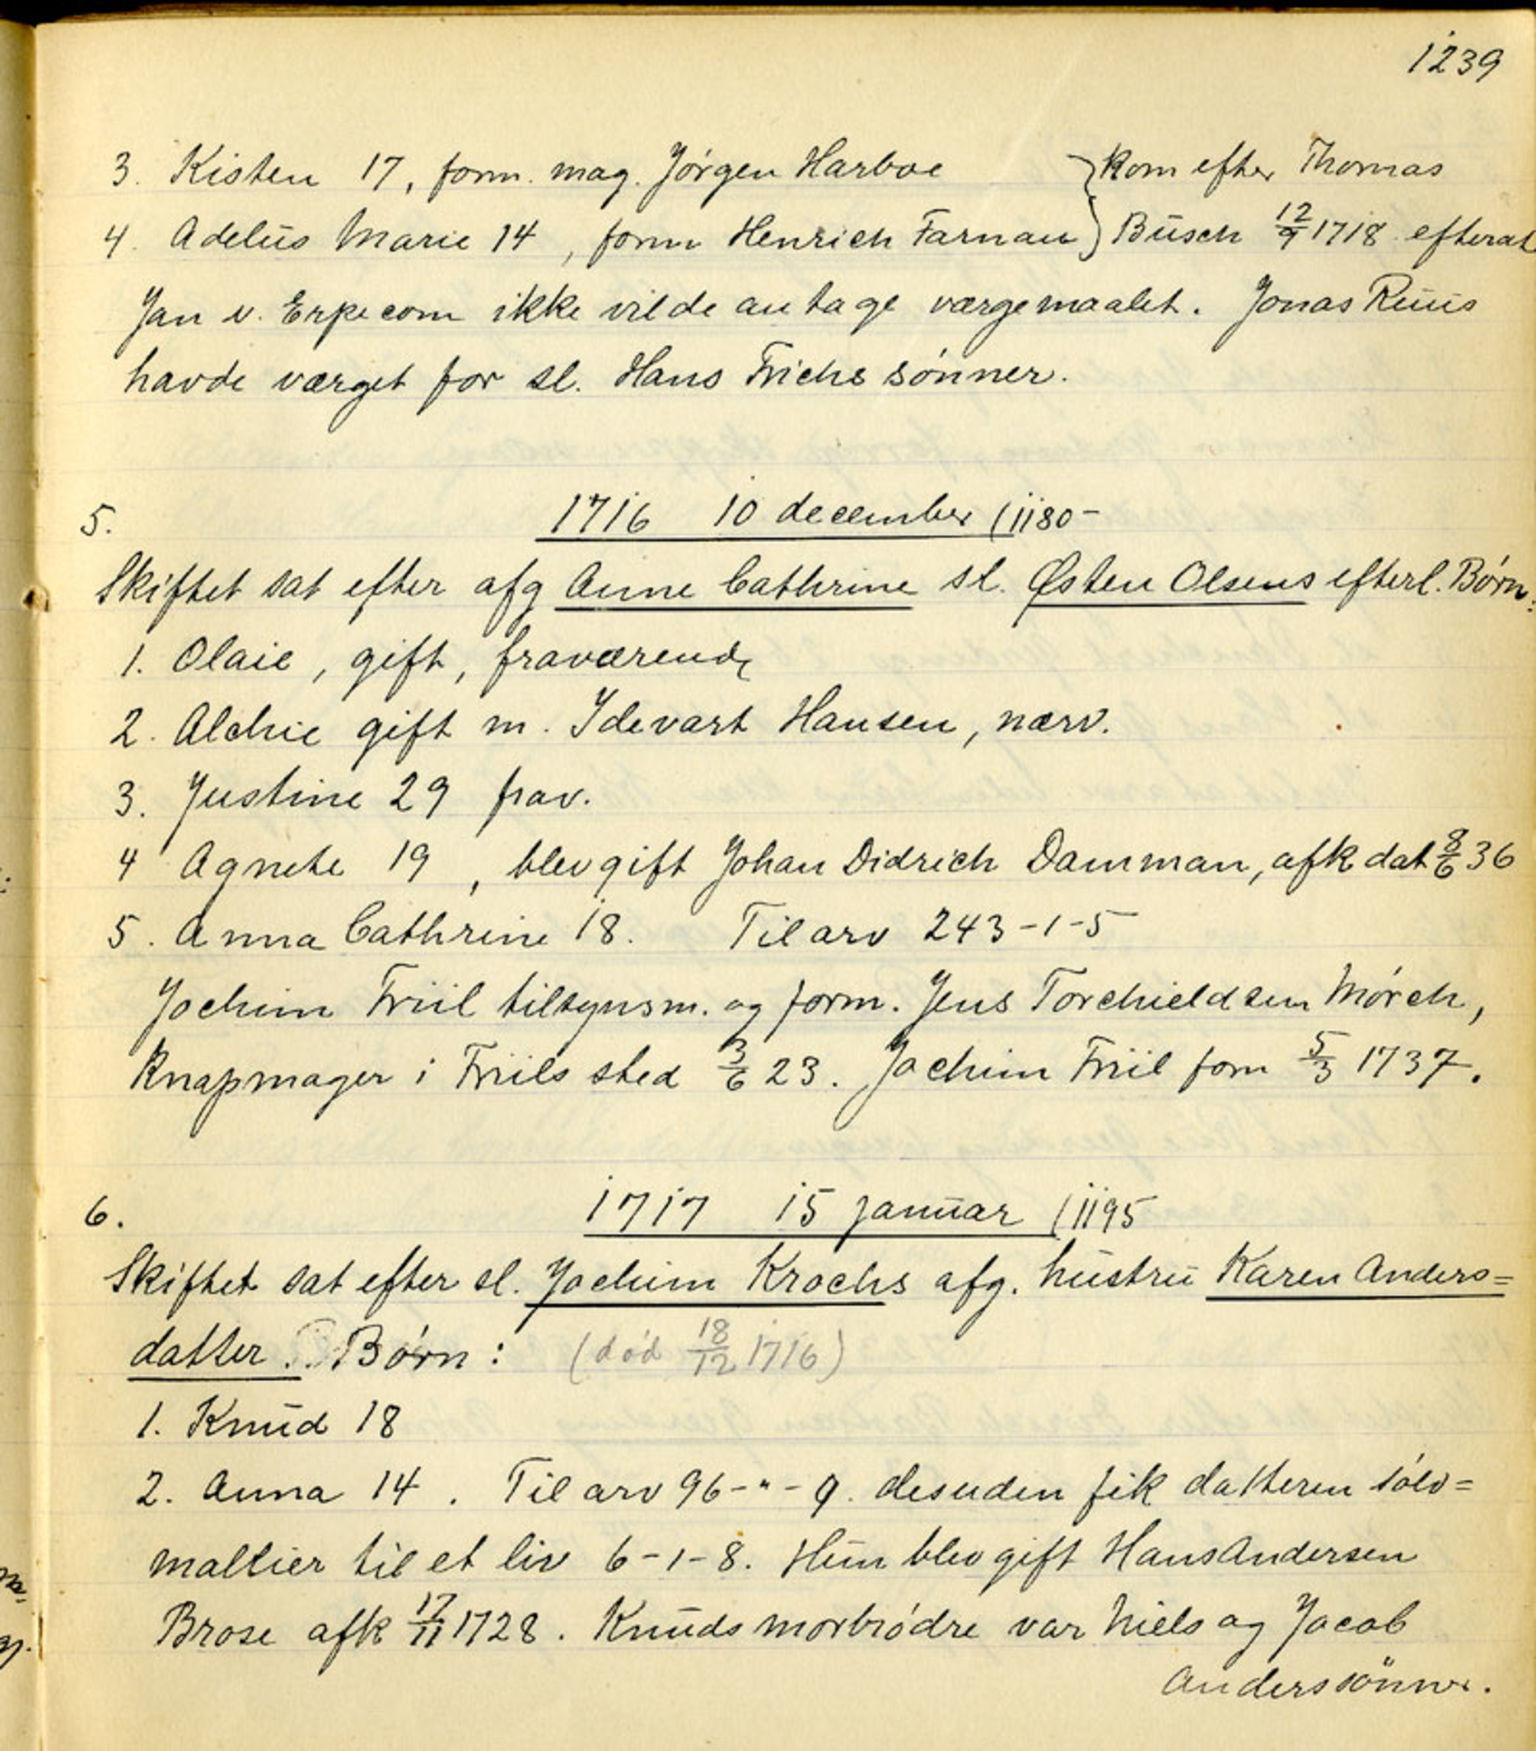 1239
3. Kisten 17, form. mag. Jörgen Harboe } kom efter Thomas
4. Adelus Marie 14, form Henrich Farnau } Busch 12/9 1718 efterat
Jan v. Erpecom ikke vilde antage værgemaalet. Jonas Ruus
havde værget for sl. Hans Frichs sönner.
5. 1716 10 december (1180-
Skiftet sat efter afg Anne Cathrine sl. Østen Olsens efterl. Børn:
1. Olaie, gift, fraværende
2. Alchie gift m. Idevart Hansen, nærv.
3. Justine 29 frav.
4 Agnete 19, blev gift Johan Didrich Damman, afk dat 8/6 36
5. Anna Cathrine 18. Til arv 243-1-5
Jochim Friil tilsynsm. og form. Jens Torchieldsen Mörch,
Knapmager i Friils sted 3/6 23. Jochim Friil form 5/3 1737.
6. 1717 15 januar (1195
Skiftet sat efter sl. Jochim Krochs afg. hustru Karen Anders=
datter. Børn: (död 18/12 1716)
1. Knud 18
2. Anna 14. Til arv 96-"-9. desuden fik datteren sölv=
mallier til et liv 6-1-8. Hun blev gift Hans Andersen
Brose afk 17/11 1728. Knuds morbrödre var Niels og Jacob
Anderssönner.